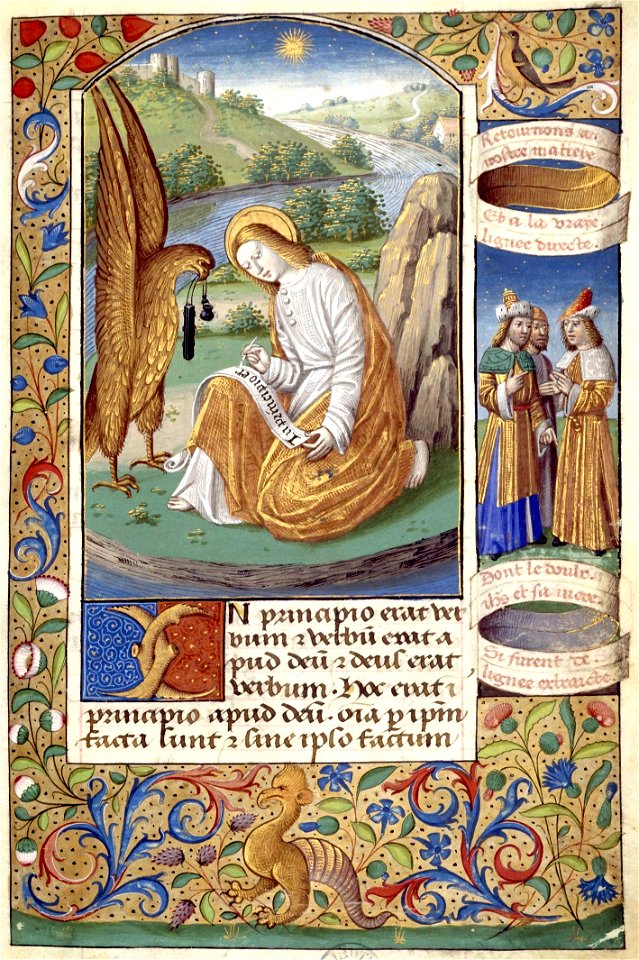 Retournons a
nostre matiere
Et a la vraye
lignee directe.
In principio er
Dont le doulx
ihs et sa mere.
Si furent de
lignee extraicte.
IN principio erat ver
bum ⁊ verbū erat a
pud deū ⁊ deus erat
verbum. Hoc erat i
principio apud deū. oīa p ip̄m
facta sunt ⁊ sine ipso factum